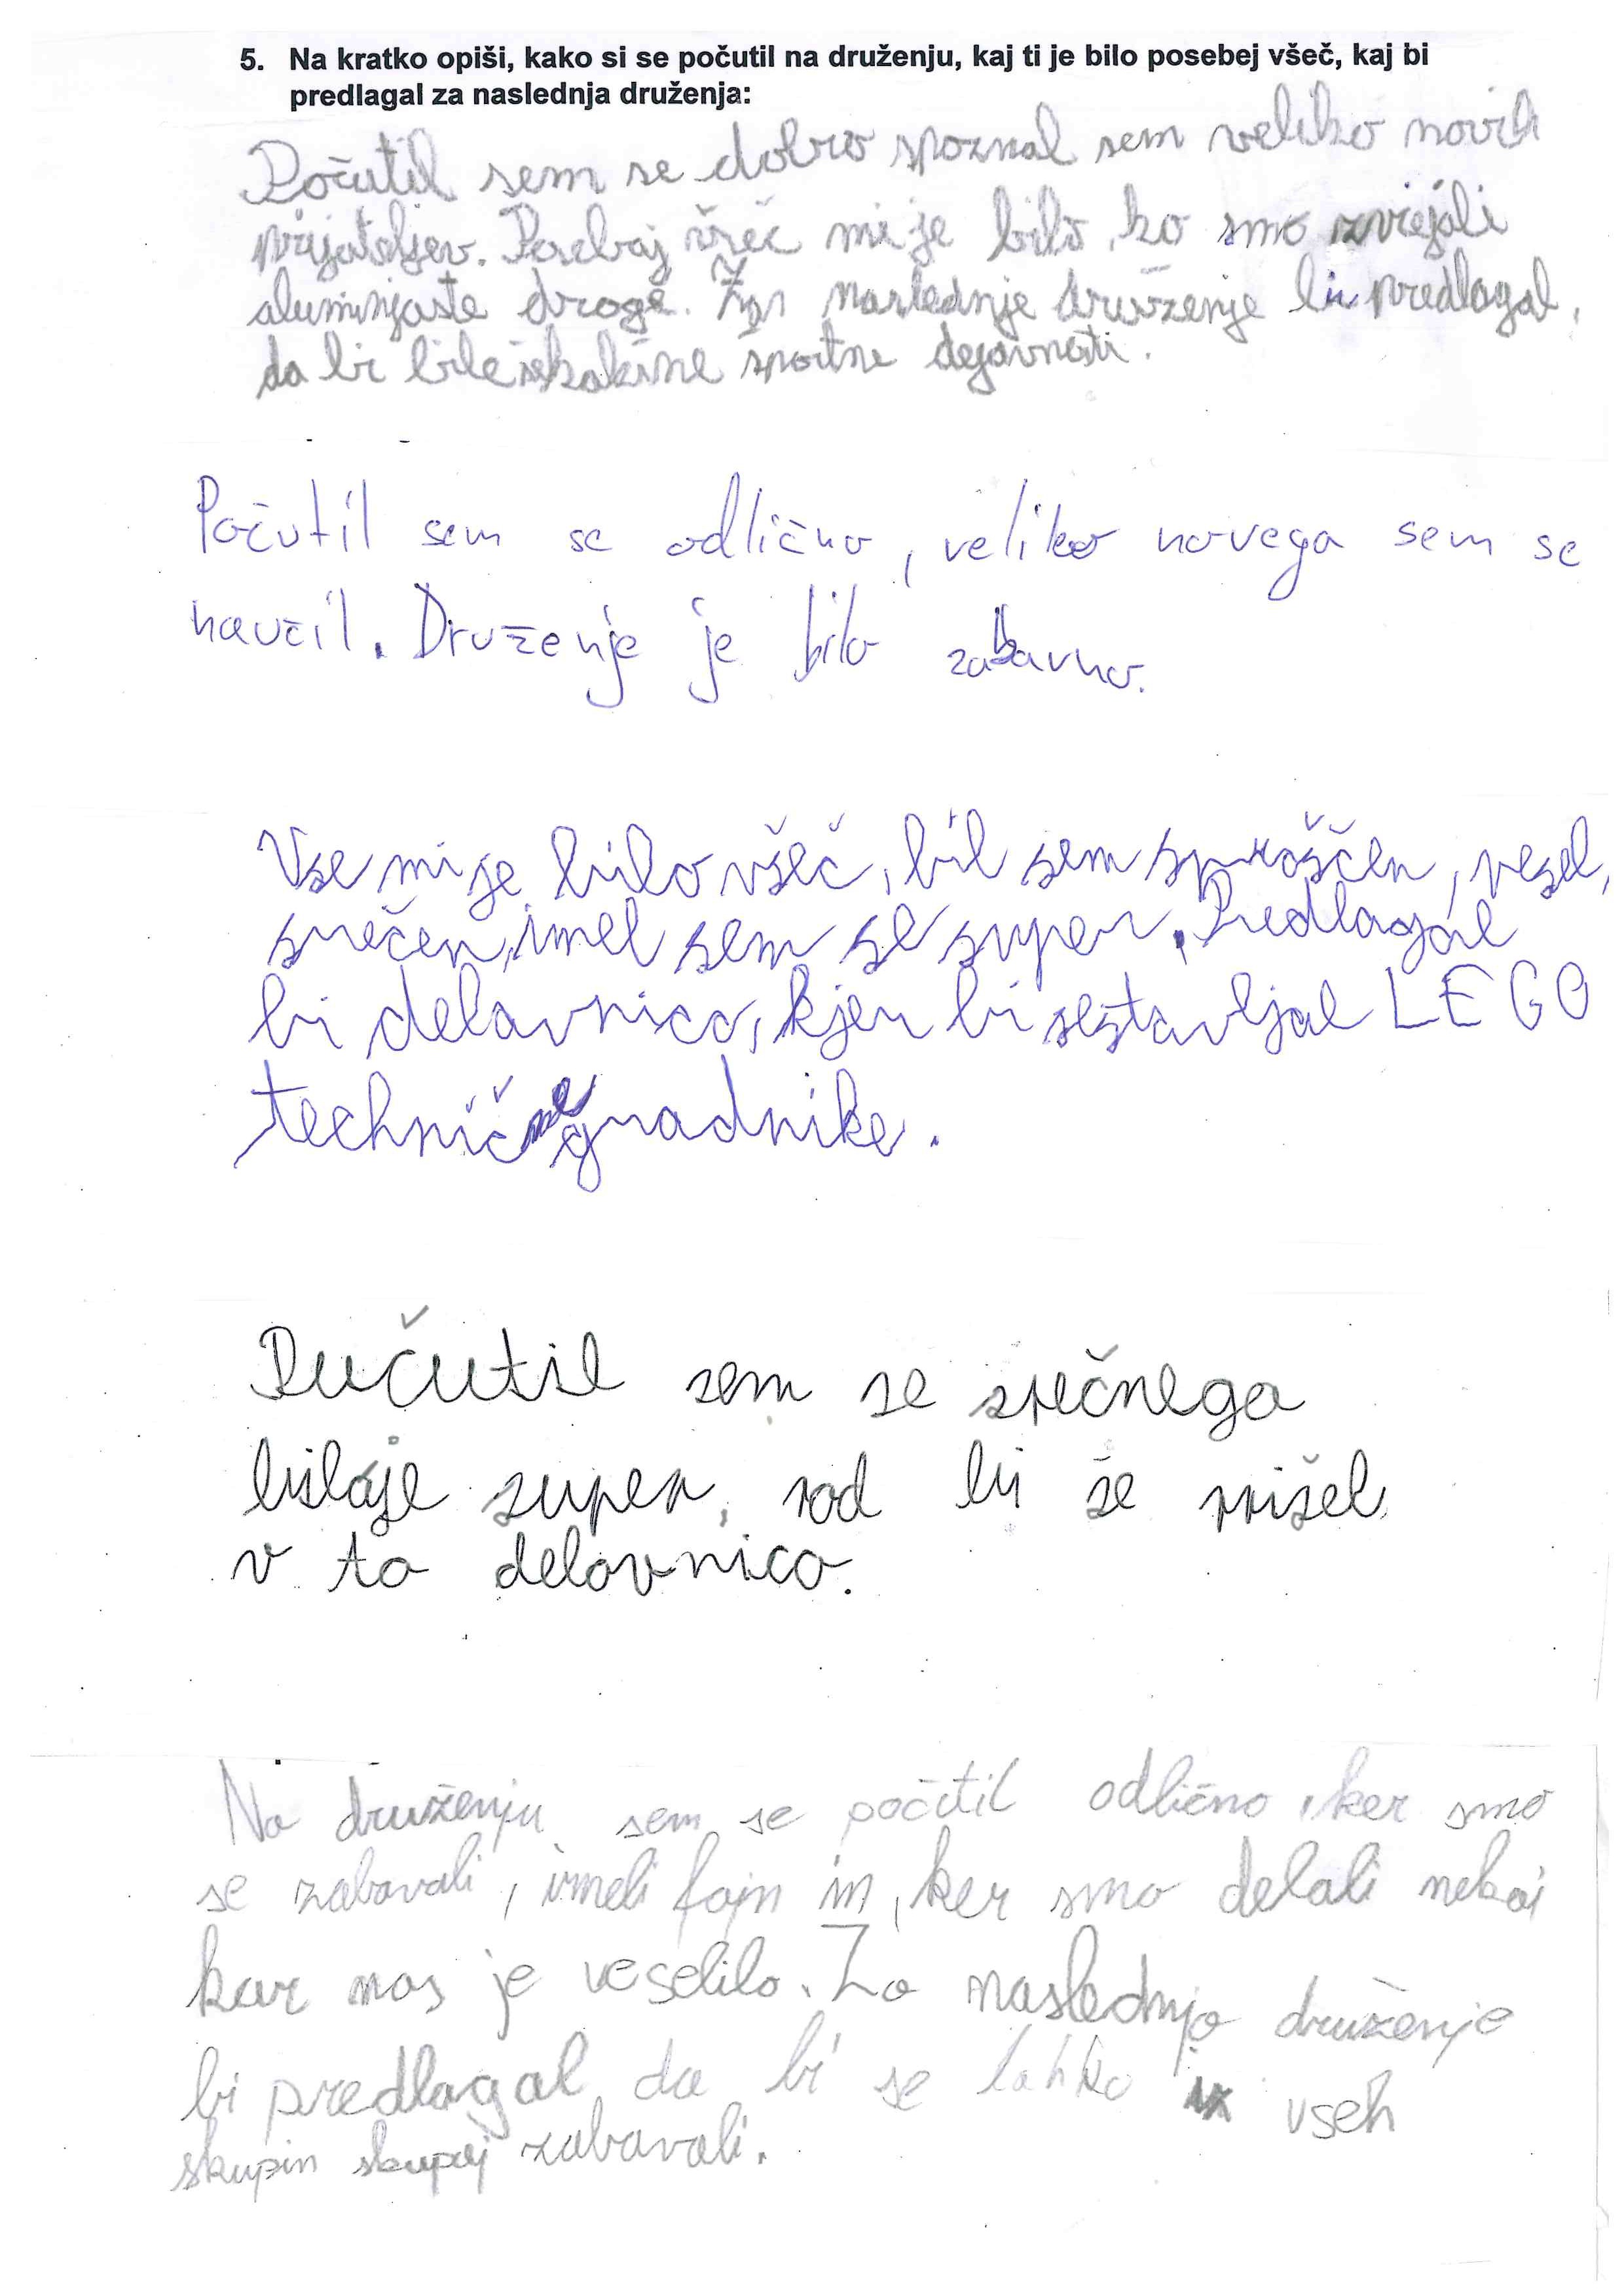 5. Na kratko opiši, kako si se počutil na druženju, kaj ti je bilo posebej všeč, kaj bi
predlagal za naslednja druženja:
Počutil sem se dobro spoznal sem veliko novih
prijateljev. Posebaj všeč mi je bilo, ko smo zvrejali
aluminjaste droge. Za naslednje druženje bi predlagal,
da bi bile športne dejavnosti.
Počutil sem se odlično, veliko novega sem se
naučil. Druženje je bilo zabavno.
Vse mi je bilo všeč, bil sem sproščen, vesel,
srečen, imel sem se super. Predlagal
bi delavnico, kjer bi sestavljal LEGO
technične gradnike.
Pučutil sem se srečnega
biloje super, rad bi še prišel
v to delavnico.
Na druženju sem se počutil odlično, ker smo
se zabavali, imeli fajn in, ker smo delali nekaj
kar nas je veselilo. Za naslednjo druženje
bi predlagal, da bi se lahko iz vseh
skupin skupaj zabavali.